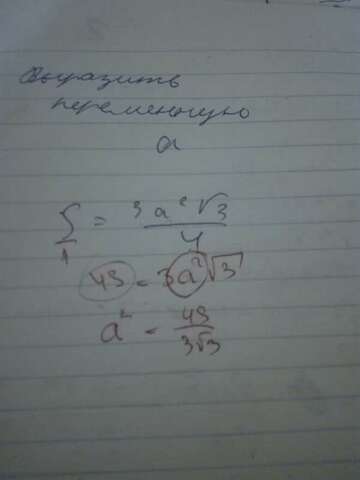 Выразить
переменную
a
S/1 = 3a²√3/4
4S = 3a²√3
a² = 4S/3√3